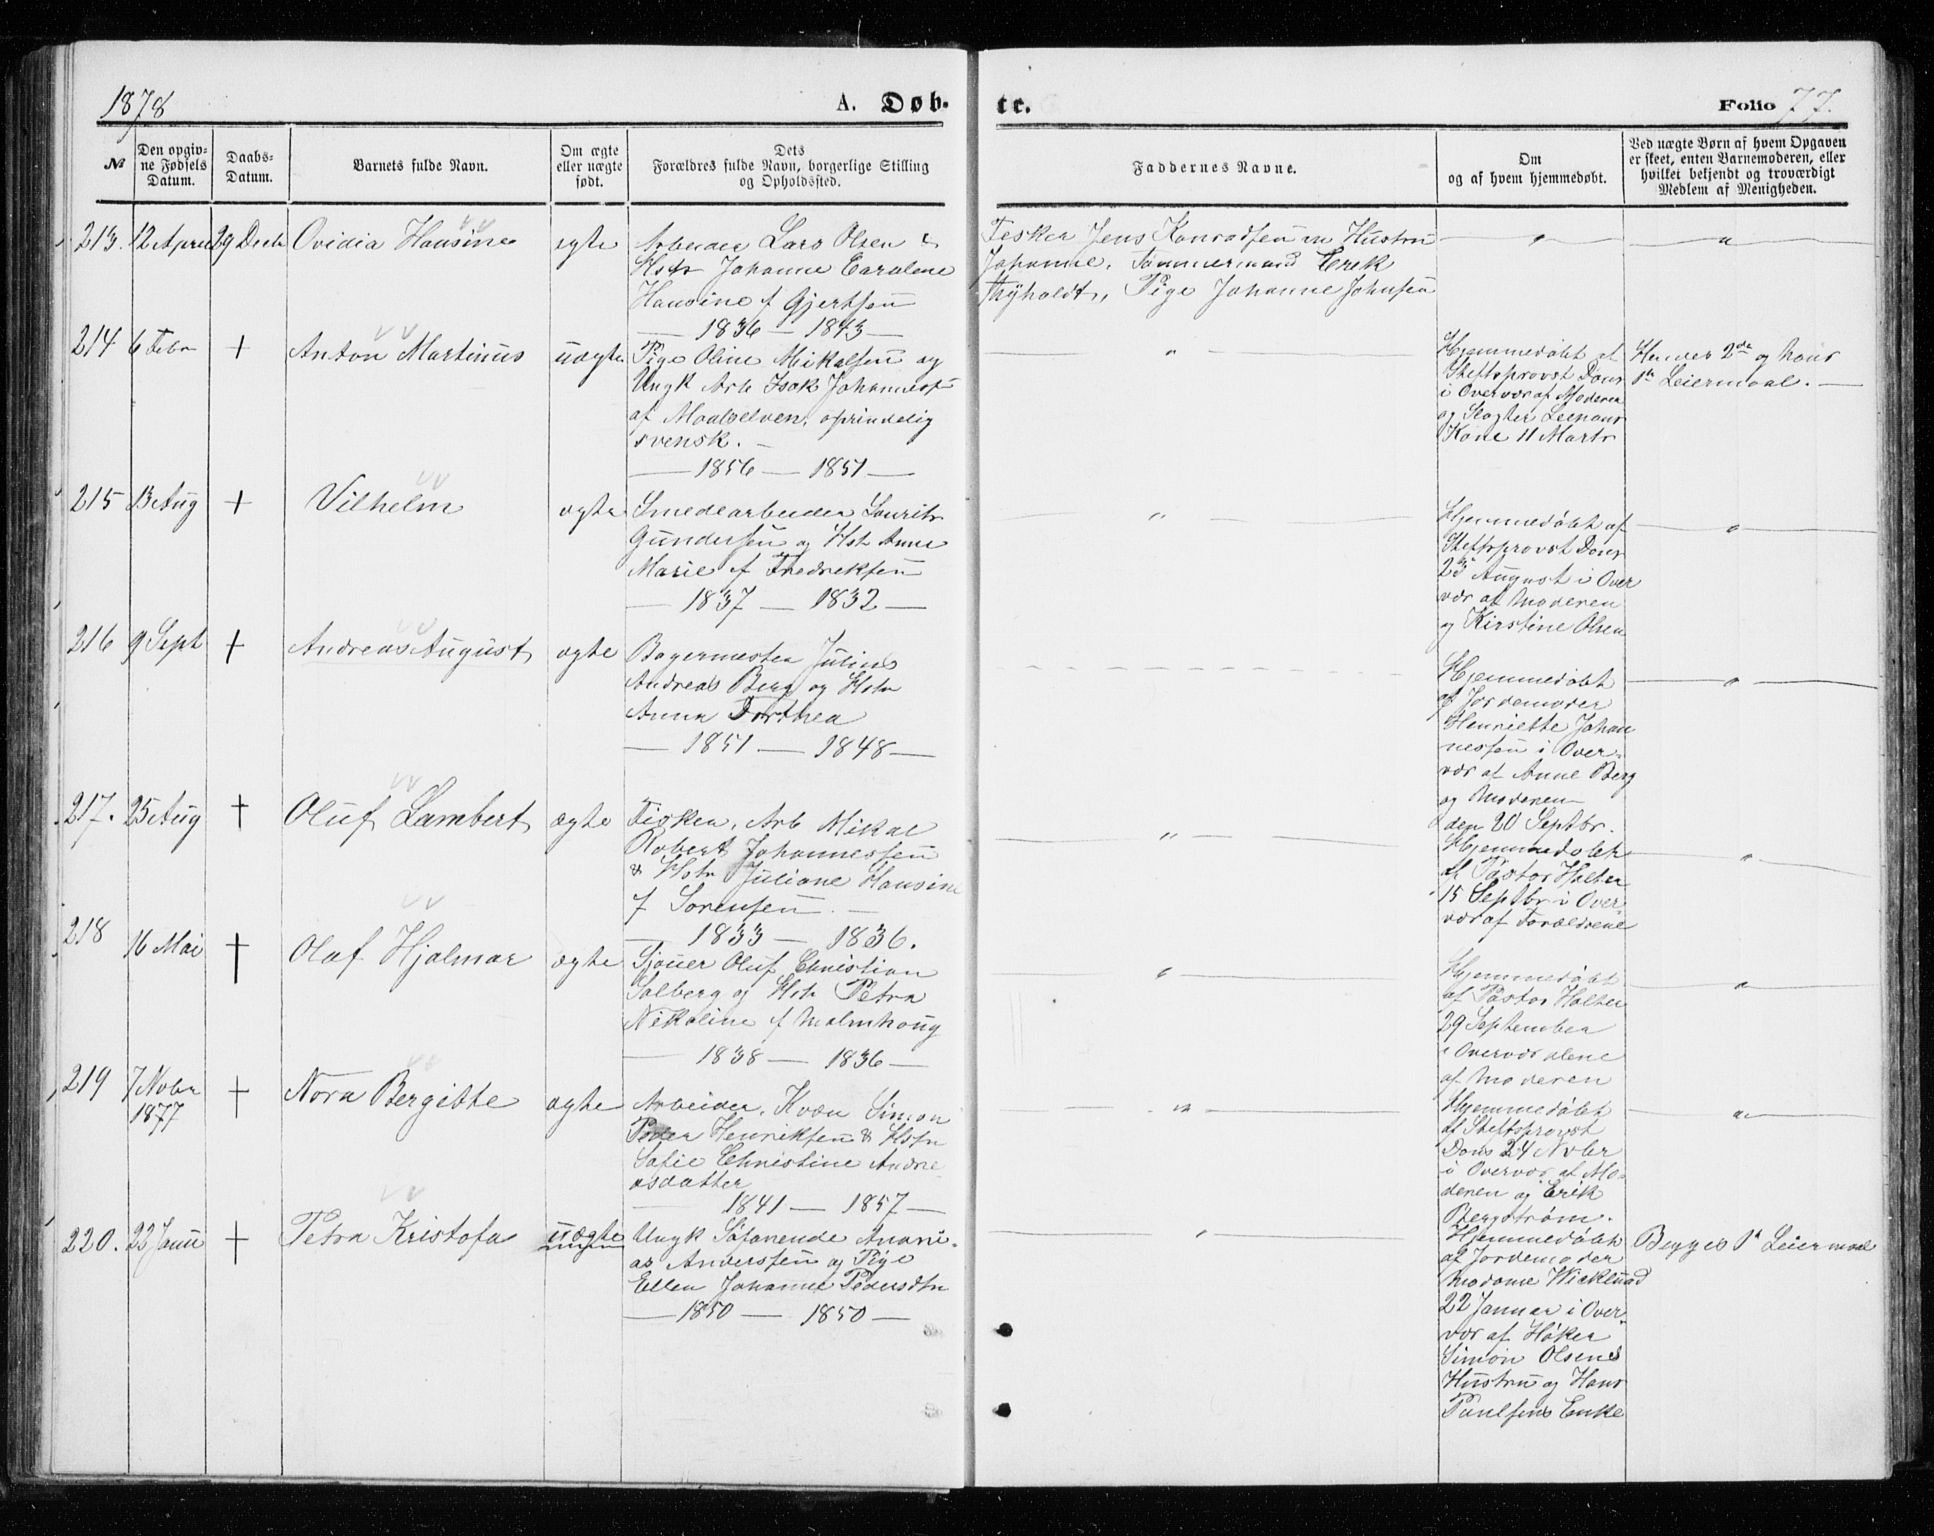 1878
A. Døb-
te.
Folio 77.
No
Den opgiv-
ne Fødsels
Datum.
Daabs-
Datum.
Barnets fulde Navn.
Om ægte
eller uægte
født.
Dets
Forældres fulde Navn, borgerlige Stilling
og Opholdssted.
Faddernes Navne.
Om
og af hvem hjemmedøbt.
Ved uægte Børn af hvem Opgaven
er skeet, enten Barnemoderen, eller
hvilket bekjendt og troværdigt
Medlem af Menigheden.
213. 12 April 29 Decb Ovidia Hansine egte
Arbeider Lars Olsen &
Hstr Johanne Caroline
Hansine f Gjertsen
— 1836 — 1843 —
Fisker Jens Konradsen m Hustru
Johanne, Tømmermand Erik
Thyholdt, Pige Johanne Johnsen
214 6 Febr + Anton Martinus uægte
Pige Oline Mikalsen og
Ungk Arb Isak Johannes
af Maalselven, oprindelig
svensk. —
— 1856 — 1851 —
Hjemmedøbt af
Stiftsprovst Dons
i Overvær af Moderen
og Slagter
Kone 11 Marts
Hendes 2de og hans
1te Leiermaal. —
215 13 Aug + Vilhelm ægte
Smedearbeider Laurits
Gundersen og Hstr Anne
Marie f Fredriksen
— 1837 — 1832 —
Hjemmedøbt af
Stiftsprovst Dons
23 August i Over
vær af Moderen
og Kirstine Olsen
216 9 Sept + Andreas August ægte
Bagermester Julius
Andreas Berg og Hstr
Anna Dorthea
— 1851 — 1848 —
Hjemmedøbt
af Jordemoder
Henriette Johan
nessen i Over-
vær af Anne Berg
og Moderen
den 20 Septbr.
217. 25 Aug + Oluf Lambert ægte
Fisker, Arb Mikal
Robert Johannessen
& Hstr Juliane Hansine
f Sørensen. —
— 1833 — 1836.
Hjemmedøbt
af Pastor Holter
15 Septbr i Over
vær af Forældrene
218 16 Mai + Olaf Hjalmar ægte
Sjouer Oluf Christian
Solberg og Hstr Petra
Nikoline f Malmhoug
— 1838 — 1836 —
Hjemmedøbt
af Pastor Holter
29 September
i Overvær alene
af Moderen
219 7 Novbr
1877 + Nora Bergitte ægte
Arbeider, Kvæn Simon
Peder Henriksen & Hstr
Sofie Christine Andre
asdatter
— 1841 — 1857 —
Hjemmedøbt
af Stiftsprovst
Dons 24 Novbr
i Overvær af Mo-
deren og Erik
Bergstrøm.
220. 22 Janu + Petra Kristofa uægte
Ungk Søfarende Anani-
as Andersen og Pige
Ellen Johanne Pedersdtr
— 1850 — 1850 —
Hjemmedøbt
af Jordemoder
Madame Wicklund
22 Januar i Over-
vær af Høker
Simon Olsens
Hustru og Hans
Paulsens Enke
Begges 1te Leiermaal